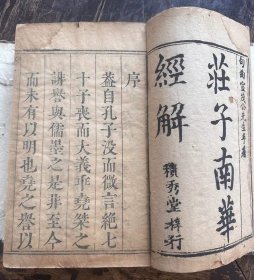 句曲宣茂公先生手著
莊子南華
經解
積秀堂梓行
序
蓋自孔子没而微言絶七
十子喪而大義乖堯桀之
誹譽與儒墨之是非至今
而未有以明也堯之譽以